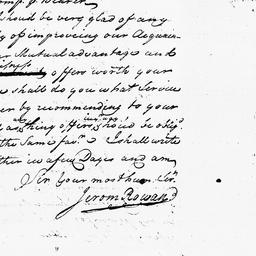 should be very glad of any
of improveing our Acquain-
Mutual advantage and
offers worth your
shall do you what Service
by recommending to your
any thing offers shod be oblig'd
the same fav.r I shall write
in a few Days and am
Sir Your most hum Ser.
Jerom Rowand